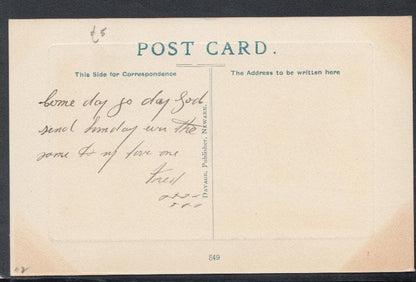 £8
POST CARD.
This Side for Correspondence
The Address to be written here
Come day go day God
send Sunday the
same to my love one
Fred
Davage, Publisher, Newark.
549